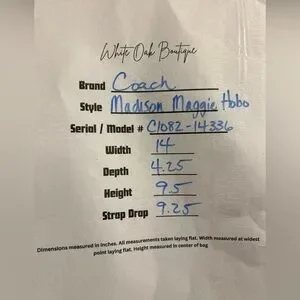 White Oak Boutique
Brand Coach
Style Madison Maggie Hobo
Serial / Model # C1082-14336
Width 14
Depth 4.25
Height 9.5
Strap Drop 9.25
Dimensions measured in inches. All measurements taken laying flat. Width measured at widest
point laying flat. Height measured in center of bag